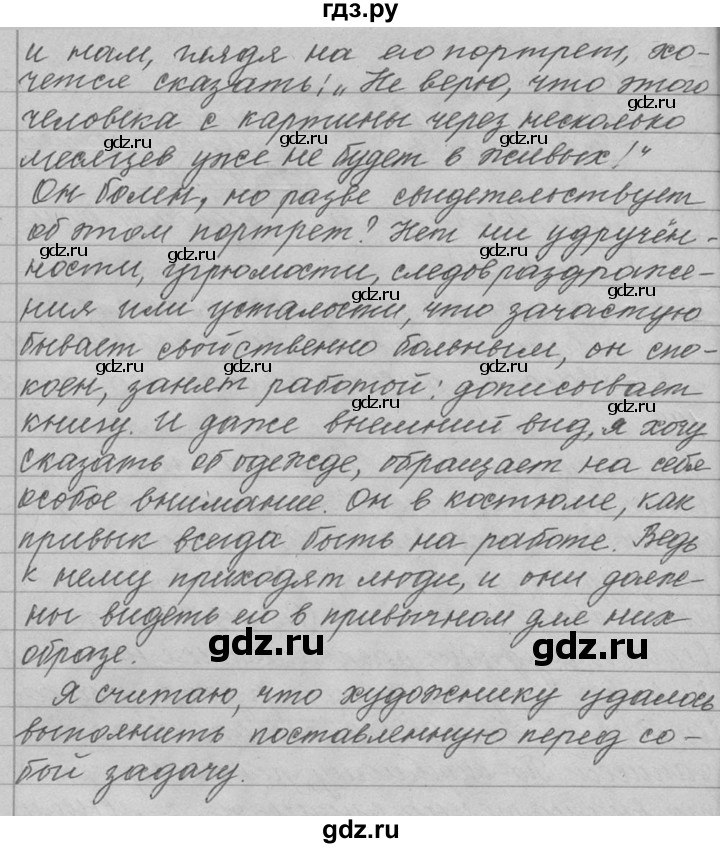 гдз.ру
и нам, глядя на его портрет, хо-
чется сказать: „Не верю, что этого
gdz.ru
человека с картины через несколько
gdz.ru gdz.ru
месяцев уже не будет в живых!“
Он болен, но разве свидетельствует
gdz.ru
об этом портрет? Нет ни удручён-
gdz.ru gdz.ru
ности, угрюмости, следов раздраже-
ния или усталости, что зачастую
gdz.ru gdz.ru
бывает свойственно больным, он спо-
gdz.ru gdz.ru
коен, занят работой: дописывает
gdz.ru
книгу. И даже внешний вид, я хочу
сказать об одежде, обращает на себя
особое внимание. Он в костюме, как
привык всегда быть на работе. Ведь
к нему приходят люди, и они долж-
ны видеть его в привычном для них
образе.
gdz.ru gdz.ru
Я считаю, что художнику удалось
выполнить поставленную перед со-
бой задачу.
gdz.ru